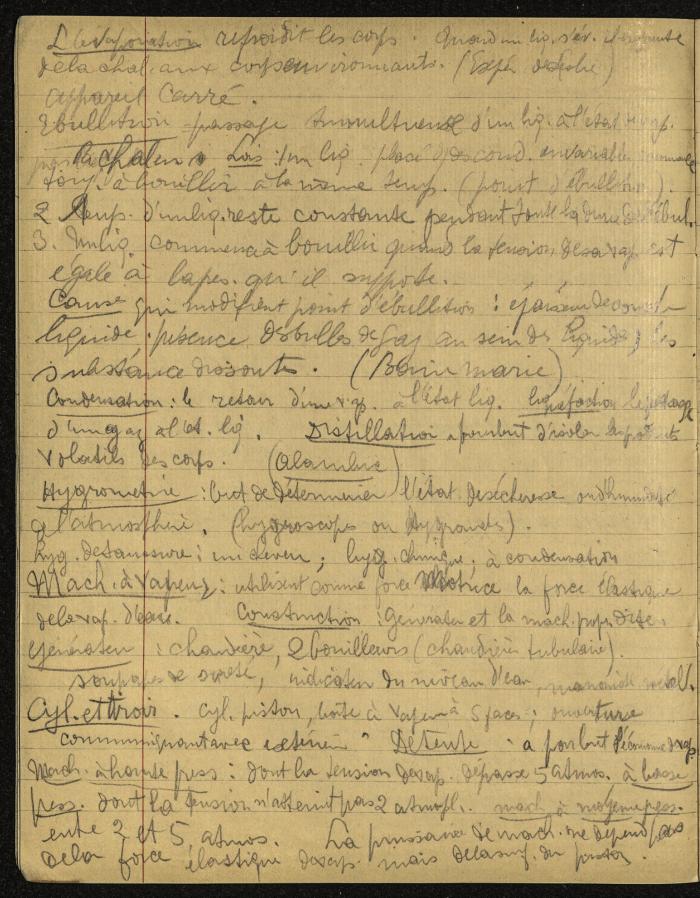 L'évaporation refroidit les corps. Quand un liq. s'év. il emprunte
de la chal. aux corps environnants. (Expér. de Leslie)
appareil Carré.
Ebullition passage tumultueux d'un liq. à l'état de vap.
par la chaleur Lois : 1 un liq. placé ds cond. invariables
touj. à bouillir à la même temp. (point d'ébullition).
2 Temp. d'un liq. reste constante pendant toute la durée de l'ébul.
3. Un liq. commence à bouillir quand la tension de sa vap. est
égale à la pres. qu'il suppote.
Cause qui modifient point d'ébullition : épaisseur de couche
liquide, présence des bulles de gaz au sein des liquides, les
substance dissoutes. (Bain marie)
Condensation : le retour d'une vap. à l'état liq. liquéfaction le passage
d'un gaz à l'ét. liq. Distillation a pour but d'isoler les produits
volatils des corps. (alambic)
Hygrométrie : but de déterminer l'état de sécheresse ou d'humidité
de l'atmosphère. (hygroscopes ou hygromètres).
hyg. de Saussure : un cheveu ; hyg. chimique ; à condensation
Mach. à Vapeur : utilisent comme force motrice la force élastique
de la vap. d'eau. Construction : Générateur et la mach. propr. dite.
Générateur : chaudière, 2 bouilleurs (chaudière tubulaire).
soupapes de sûreté, indicateur du niveau d'eau, manomètre métall.
Cyl. et tiroir. Cyl. piston, boîte à vapeur à 5 faces ; ouverture
communiquant avec extérieur. Détente : a pour but l'économie de vap.
Mach. à haute press : dont la tension de vap. dépasse 5 atmos. à basse
press. dont la tension n'atteint pas 2 atmosph. mach à moyenne press.
entre 2 et 5 atmos. La puissance de mach. ne dépend pas
de la force élastique de vap. mais de la surf. du piston.